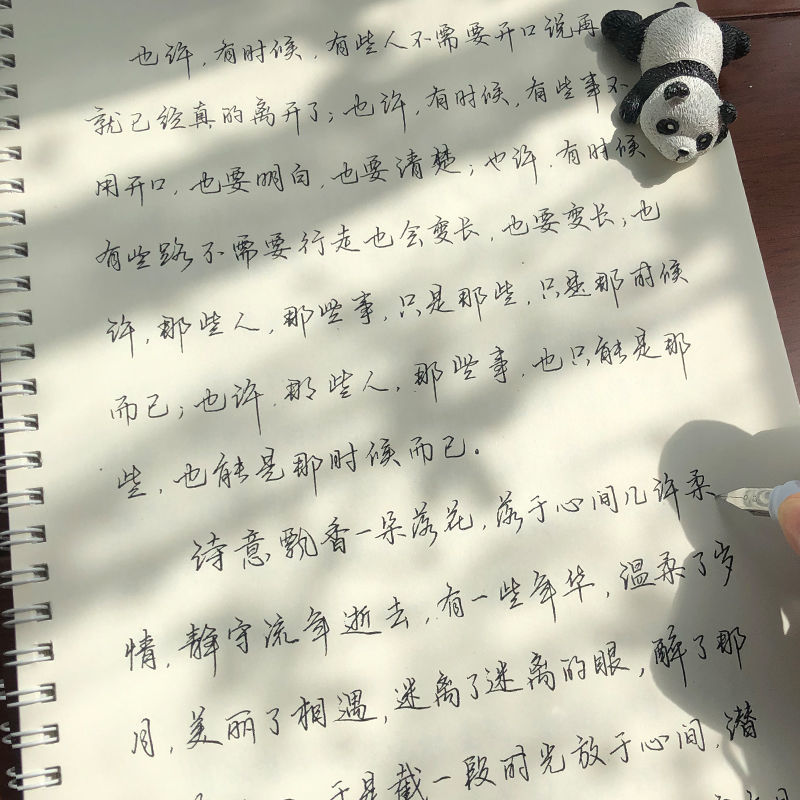 也许，有时候，有些人不需要开口说再
就已经真的离开了；也许，有时候，有些事不
用开口，也要明白，也要清楚；也许，有时候
有些路不需要行走也会变长，也要变长；也
许，那些人，那些事，只是那些，只是那时候
而已；也许，那些人，那些事，也只能是那
些，也能是那时候而已。
诗意飘香一朵落花，落于心间几许柔
情，静守流年逝去，有一些年华，温柔了岁
月，美丽了相遇，迷离了迷离的眼，醉了那
于是截一段时光放于心间，潜